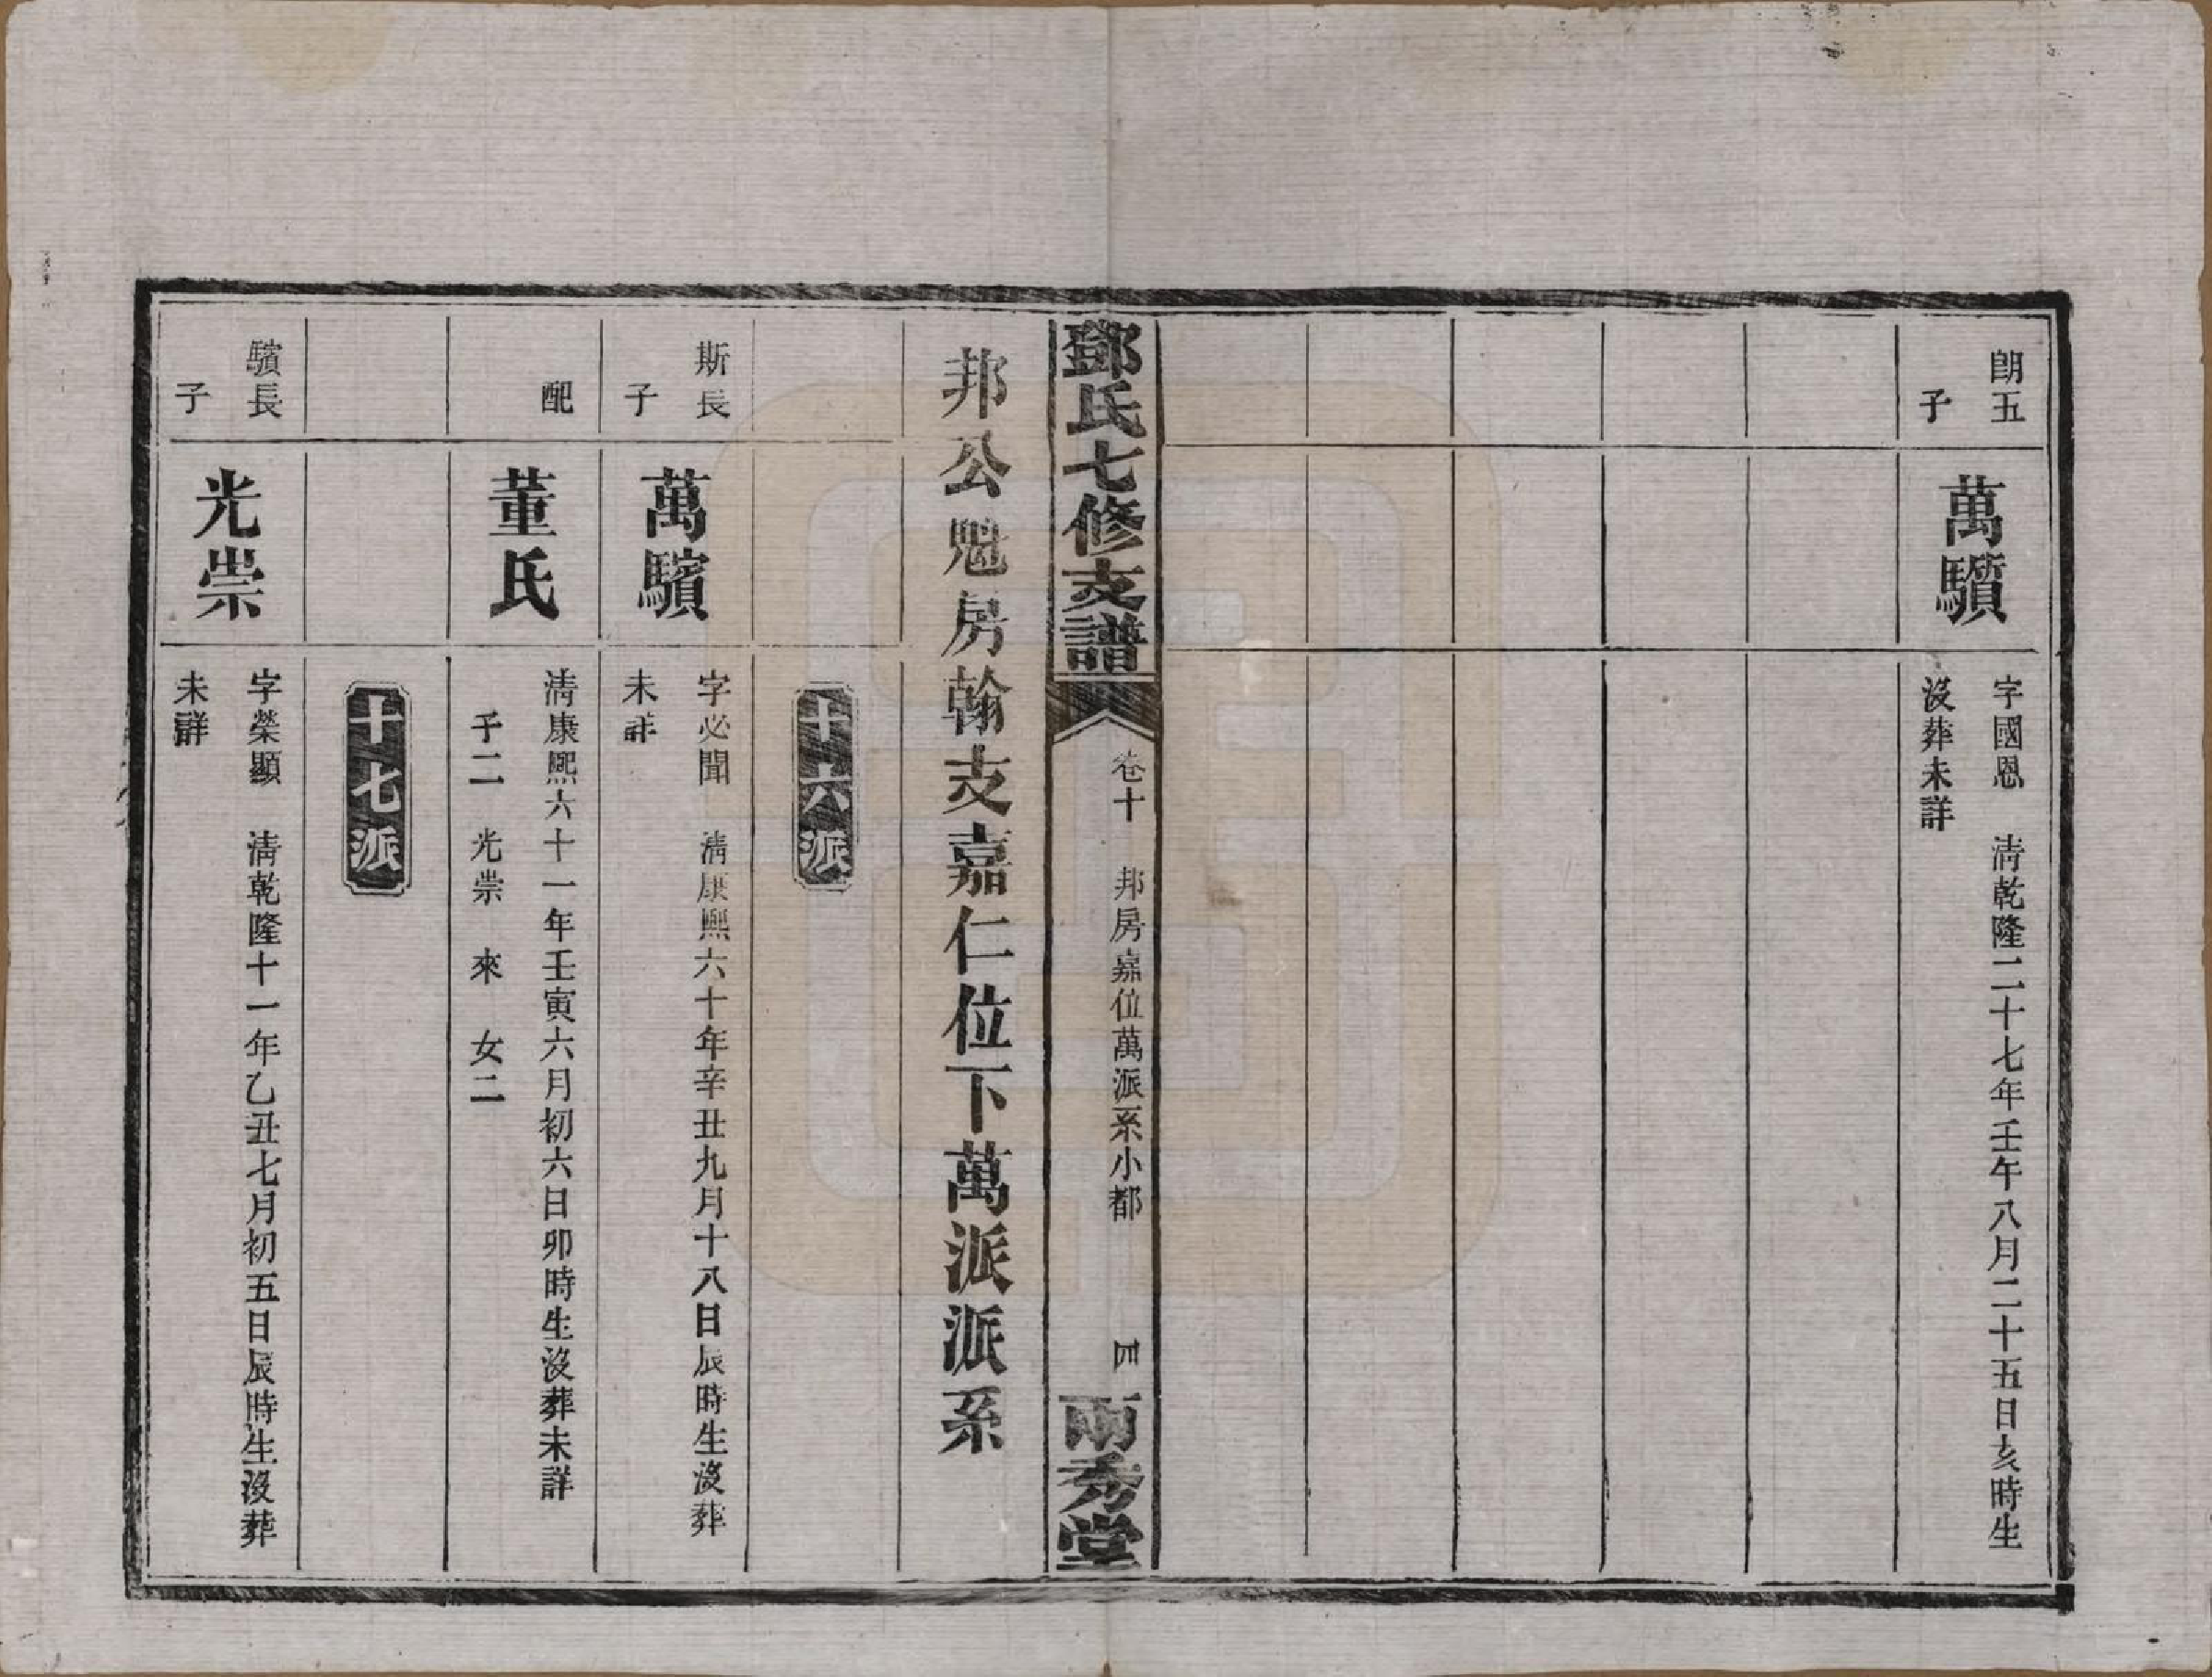 朗五
子
萬驞
字國恩　淸乾隆二十七年壬午八月二十五日亥時生
沒葬未詳
鄧氏七修支譜
卷十　邦房嘉位萬派系小都
四
兩秀堂
邦公魁房翰支嘉仁位下萬派派系
十六派
斯長
子
萬驞
字必聞　淸康熙六十年辛丑九月十八日辰時生沒葬
未詳
配
董氏
淸康熙六十一年壬寅六月初六日卯時生沒葬未詳
子二　光崇　來　女二
十七派
驞長
子
光崇
字榮顯　淸乾隆十一年乙丑七月初五日辰時生沒葬
未詳